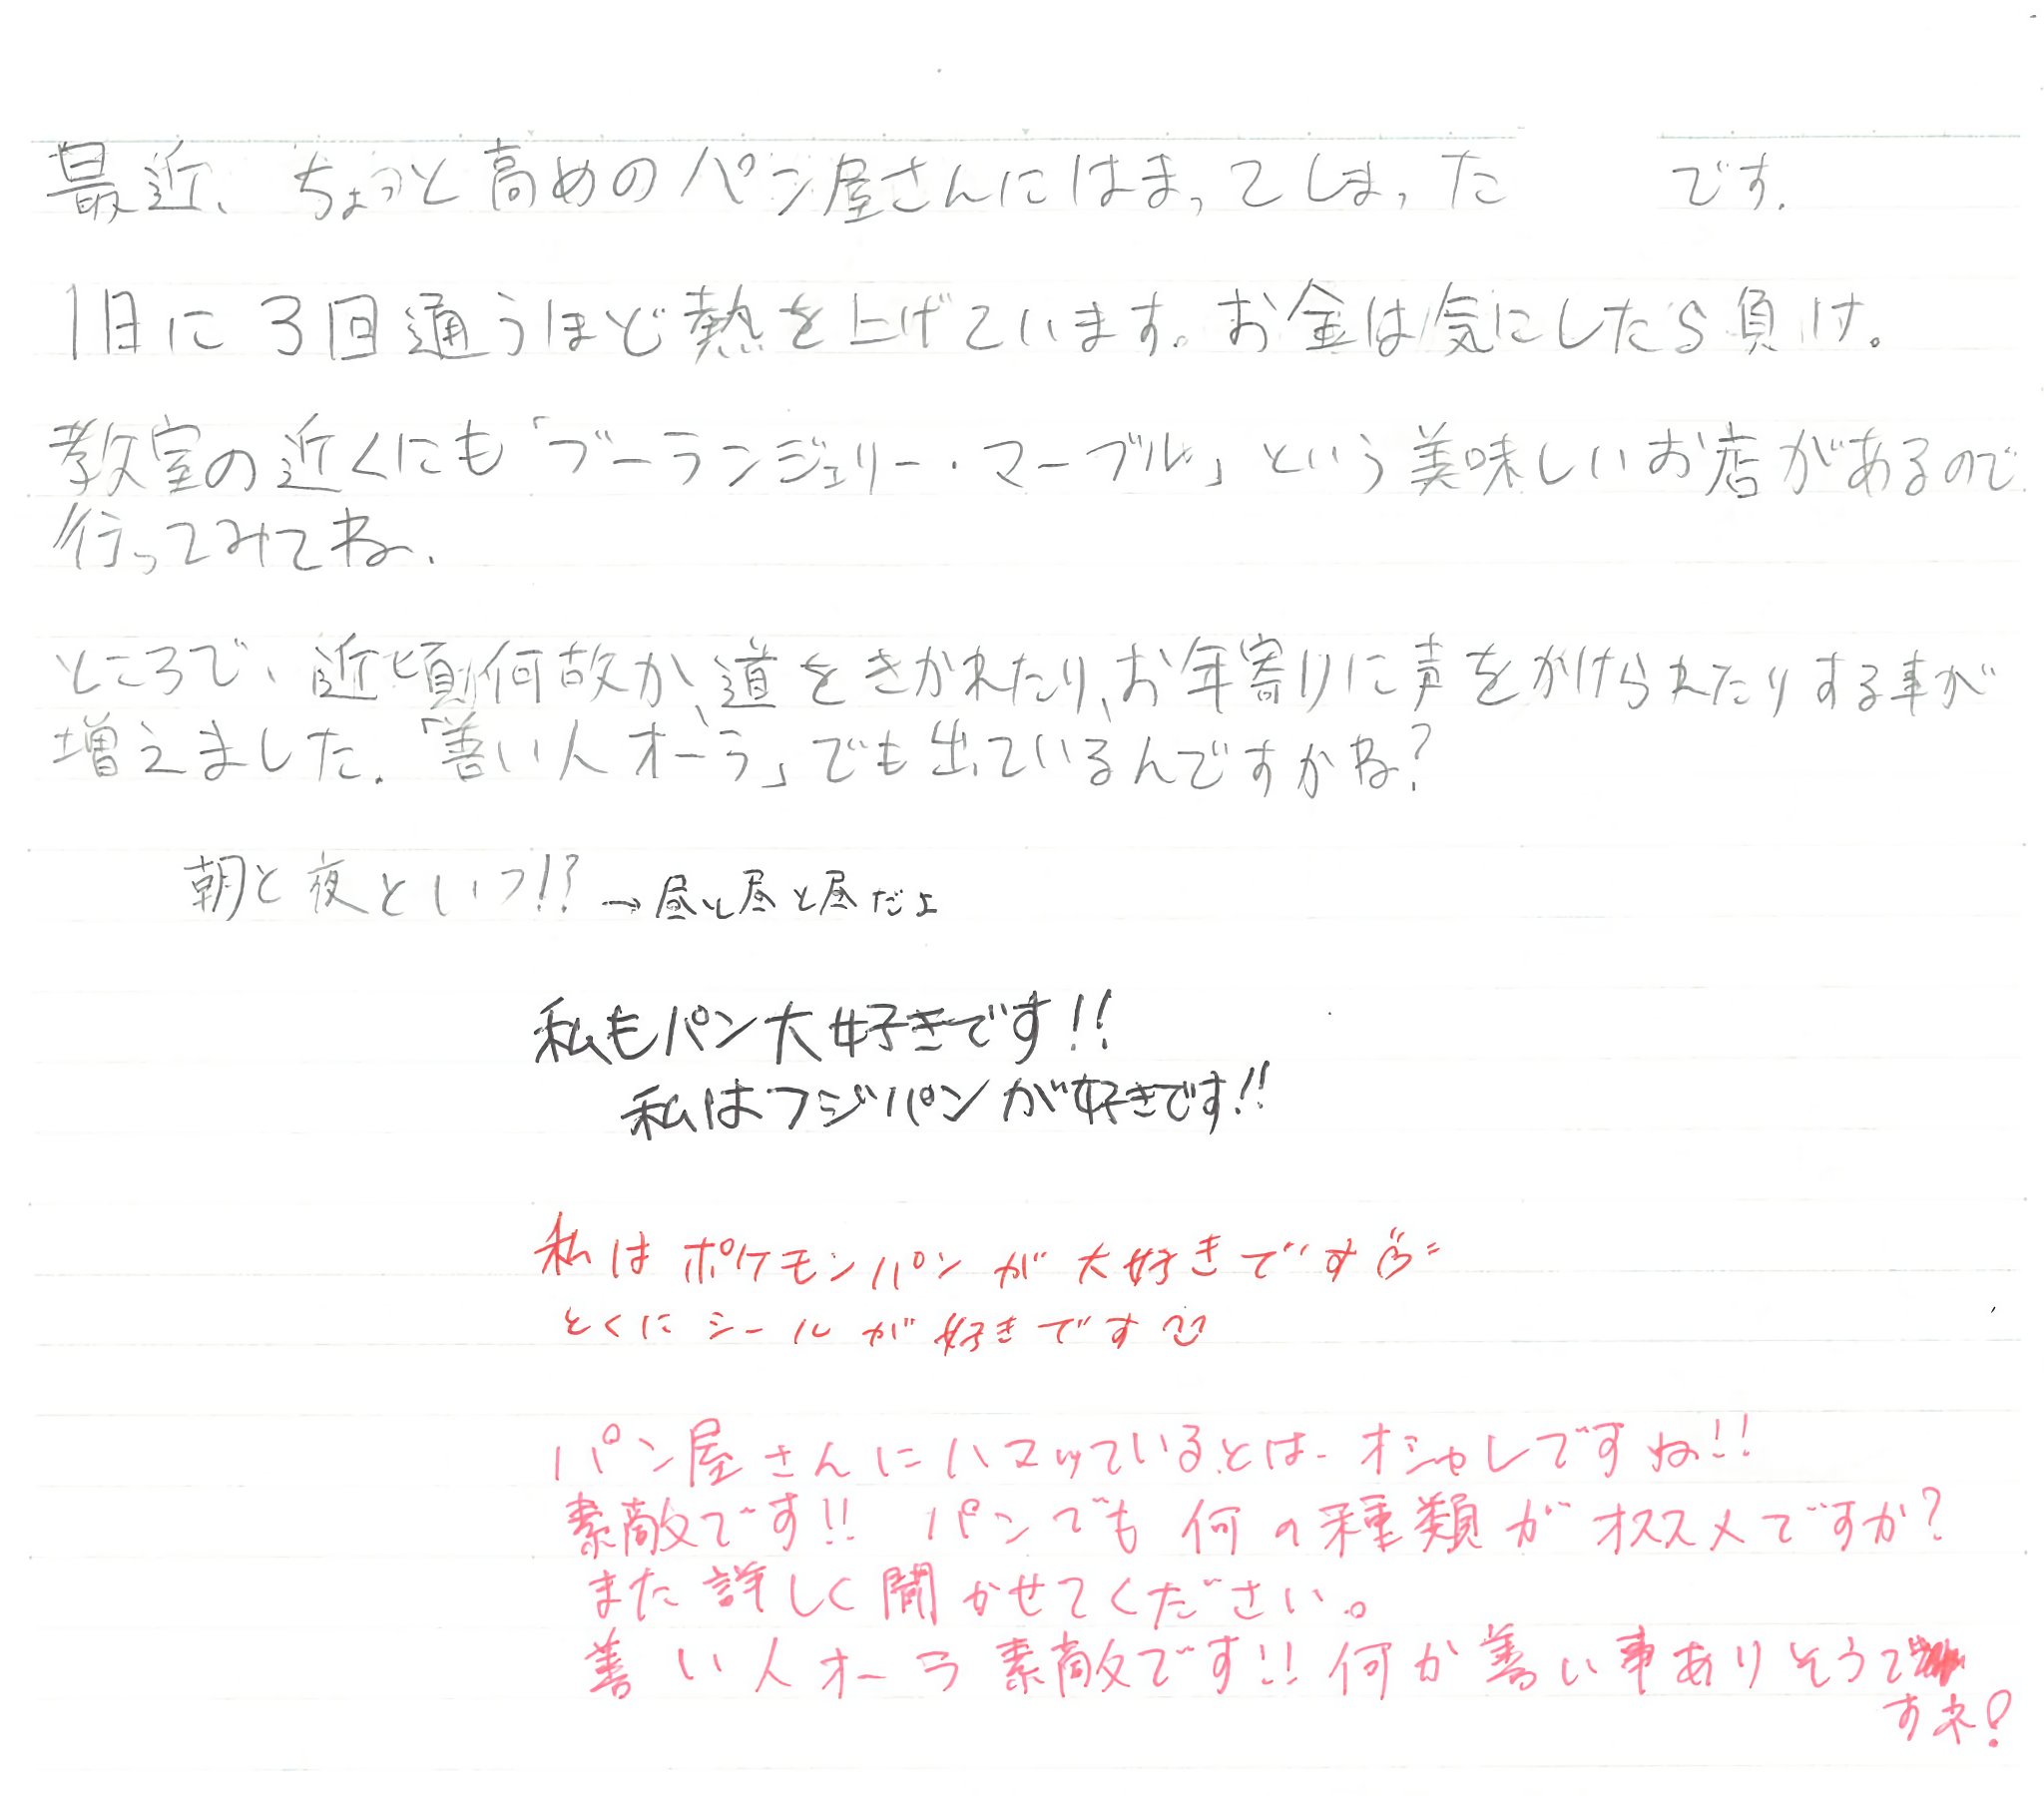 最近、ちょっと高めのパン屋さんにはまってしまった です.
1日に3回通うほど熱を上げています。お金は気にしたら負け。
教室の近くにも「ブーランジェリー・マーブル」という美味しいお店があるので
行ってみてね.
ところで、近頃何故か道をきかれたり、お年寄りに声をかけられたりする事が
増えました.「善い人オーラ」でも出ているんですかね?
朝と夜といつ!? →昼と昼と昼だよ
私もパン大好きです!!
私はフジパンが好きです!!
私はポケモンパンが大好きです
とくにシールが好きです
パン屋さんにハマッているとは-オシャレですね!!
素敵です!! パンでも何の種類がオススメですか?
また詳しく聞かせてください。
善い人オーラ素敵です!!何か善い事ありそうで
すネ!